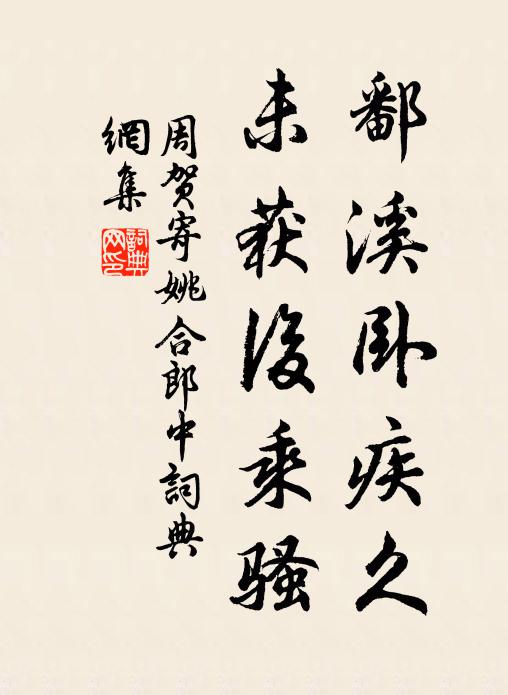 鄱溪卧疾久
未获後乘骚
周贺寄姚合郎中詞典
網集
詞典網印